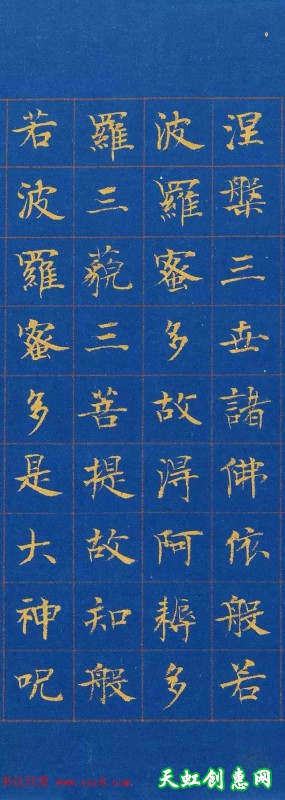 涅槃三世諸佛依般若
波羅蜜多故得阿耨多
羅三藐三菩提故知般
若波羅蜜多是大神呪
天虹创意网